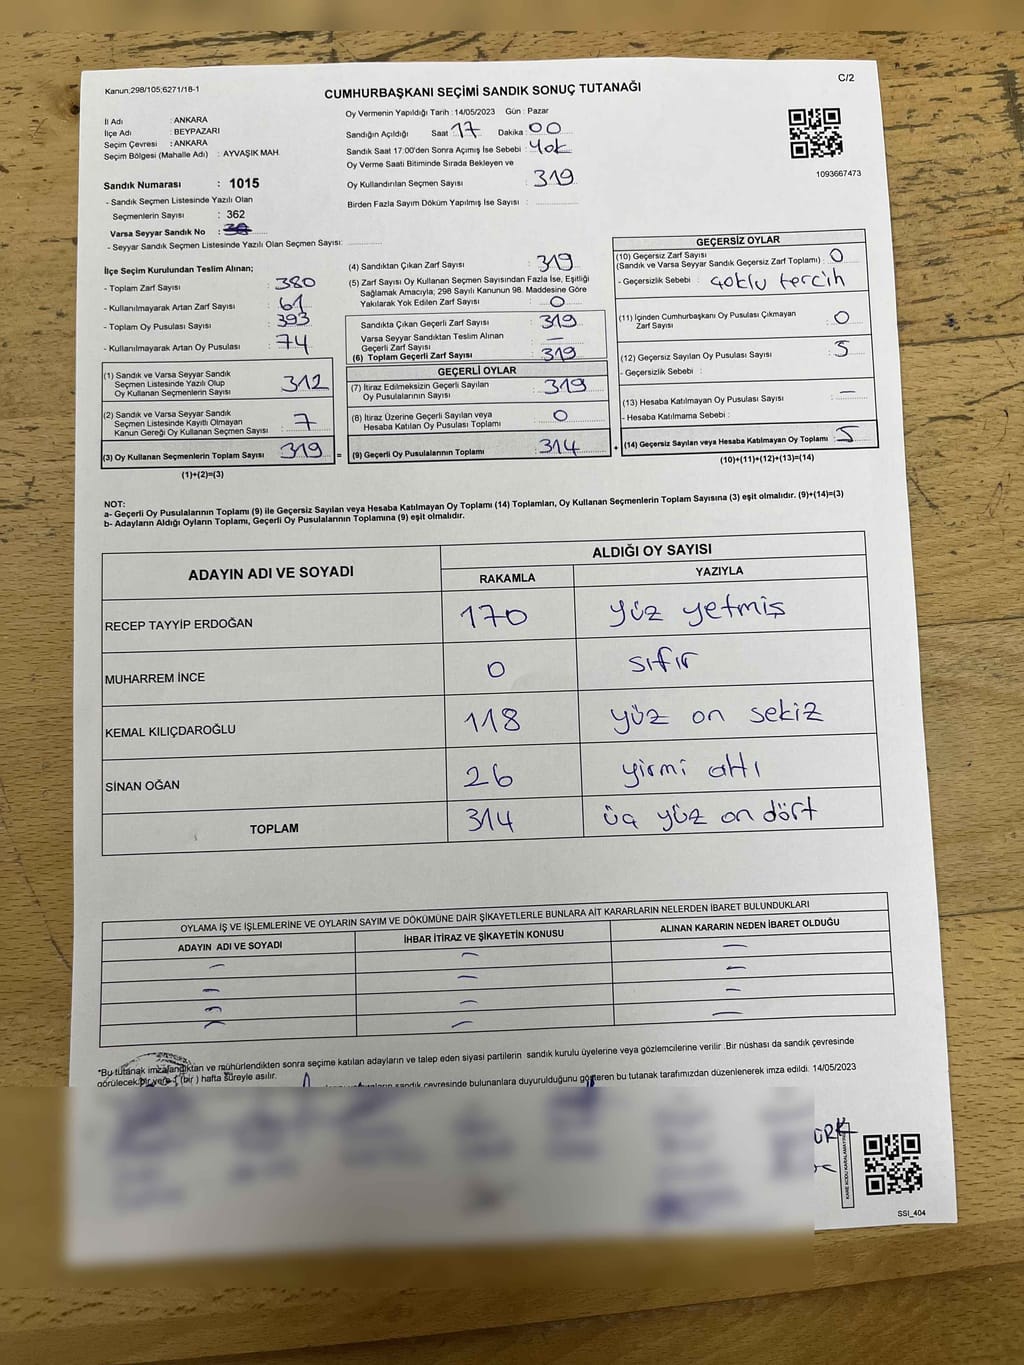 Kanun;298/105;6271/18-1
C/2
CUMHURBAŞKANI SEÇİMİ SANDIK SONUÇ TUTANAĞI
İl Adı : ANKARA
İlçe Adı : BEYPAZARI
Seçim Çevresi : ANKARA
Seçim Bölgesi (Mahalle Adı) : AYVAŞIK MAH.
Oy Vermenin Yapıldığı Tarih : 14/05/2023 Gün : Pazar
Sandığın Açıldığı Saat 17 Dakika 00
Sandık Saat 17:00'den Sonra Açılmış İse Sebebi : Yok
Oy Verme Saati Bitiminde Sırada Bekleyen ve
Oy Kullandırılan Seçmen Sayısı : 319
Birden Fazla Sayım Döküm Yapılmış İse Sayısı :
1093667473
Sandık Numarası : 1015
- Sandık Seçmen Listesinde Yazılı Olan
Seçmenlerin Sayısı : 362
Varsa Seyyar Sandık No :
- Seyyar Sandık Seçmen Listesinde Yazılı Olan Seçmen Sayısı:
İlçe Seçim Kurulundan Teslim Alınan;
- Toplam Zarf Sayısı : 380
- Kullanılmayarak Artan Zarf Sayısı : 61
- Toplam Oy Pusulası Sayısı : 393
- Kullanılmayarak Artan Oy Pusulası : 74
(1) Sandık ve Varsa Seyyar Sandık
Seçmen Listesinde Yazılı Olup
Oy Kullanan Seçmenlerin Sayısı : 312
(2) Sandık ve Varsa Seyyar Sandık
Seçmen Listesinde Kayıtlı Olmayan
Kanun Gereği Oy Kullanan Seçmen Sayısı : 7
(3) Oy Kullanan Seçmenlerin Toplam Sayısı : 319 =
(1)+(2)=(3)
(4) Sandıktan Çıkan Zarf Sayısı : 319
(5) Zarf Sayısı Oy Kullanan Seçmen Sayısından Fazla İse, Eşitliği
Sağlamak Amacıyla; 298 Sayılı Kanunun 98. Maddesine Göre
Yakılarak Yok Edilen Zarf Sayısı : 0
Sandıkta Çıkan Geçerli Zarf Sayısı : 319
Varsa Seyyar Sandıktan Teslim Alınan
Geçerli Zarf Sayısı : —
(6) Toplam Geçerli Zarf Sayısı : 319
GEÇERLİ OYLAR
(7) İtiraz Edilmeksizin Geçerli Sayılan
Oy Pusulalarının Sayısı : 319
(8) İtiraz Üzerine Geçerli Sayılan veya
Hesaba Katılan Oy Pusulası Toplamı : 0
(9) Geçerli Oy Pusulalarının Toplamı : 314 +
GEÇERSİZ OYLAR
(10) Geçersiz Zarf Sayısı
(Sandık ve Varsa Seyyar Sandık Geçersiz Zarf Toplamı) : 0
- Geçersizlik Sebebi : çoklu tercih
(11) İçinden Cumhurbaşkanı Oy Pusulası Çıkmayan
Zarf Sayısı : 0
(12) Geçersiz Sayılan Oy Pusulası Sayısı : 5
- Geçersizlik Sebebi :
(13) Hesaba Katılmayan Oy Pusulası Sayısı : —
- Hesaba Katılmama Sebebi :
(14) Geçersiz Sayılan veya Hesaba Katılmayan Oy Toplamı : 5
(10)+(11)+(12)+(13)=(14)
NOT:
a- Geçerli Oy Pusulalarının Toplamı (9) ile Geçersiz Sayılan veya Hesaba Katılmayan Oy Toplamı (14) Toplamları, Oy Kullanan Seçmenlerin Toplam Sayısına (3) eşit olmalıdır. (9)+(14)=(3)
b- Adayların Aldığı Oyların Toplamı, Geçerli Oy Pusulalarının Toplamına (9) eşit olmalıdır.
ADAYIN ADI VE SOYADI
ALDIĞI OY SAYISI
RAKAMLA YAZIYLA
RECEP TAYYİP ERDOĞAN 170 yüz yetmiş
MUHARREM İNCE 0 sıfır
KEMAL KILIÇDAROĞLU 118 yüz on sekiz
SİNAN OĞAN 26 yirmi altı
TOPLAM 314 üç yüz on dört
OYLAMA İŞ VE İŞLEMLERİNE VE OYLARIN SAYIM VE DÖKÜMÜNE DAİR ŞİKAYETLERLE BUNLARA AİT KARARLARIN NELERDEN İBARET BULUNDUKLARI
ADAYIN ADI VE SOYADI İHBAR İTİRAZ VE ŞİKAYETİN KONUSU ALINAN KARARIN NEDEN İBARET OLDUĞU
— — —
— — —
— — —
— — —
*Bu tutanak imzalandıktan ve mühürlendikten sonra seçime katılan adayların ve talep eden siyasi partilerin sandık kurulu üyelerine veya gözlemcilerine verilir .Bir nüshası da sandık çevresinde
görülecek bir yere 1 (bir ) hafta süreyle asılır.
sandık çevresinde bulunanlara duyurulduğunu gösteren bu tutanak tarafımızdan düzenlenerek imza edildi. 14/05/2023
SSI_404